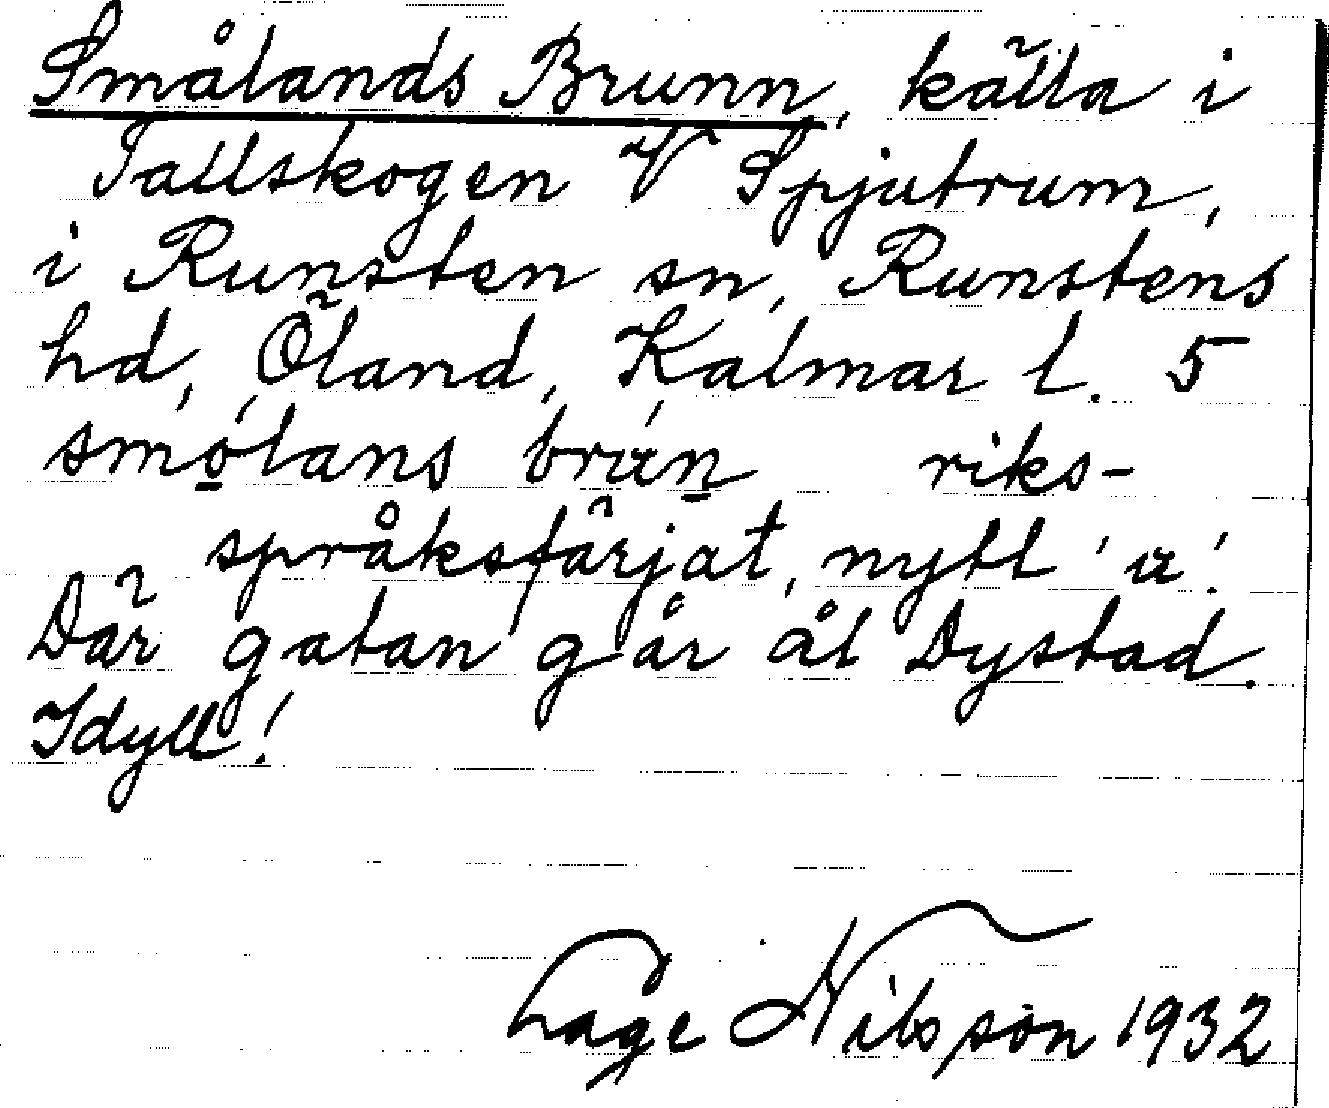 Smålands Brunn, källa i
Tallskogen V Spjutrum,
i Runsten sn, Runstens
hd, Öland, Kalmar l. 5
smólans brán riks-
språksfärjat, nytt 'a'!
Där gatan går åt Dystad.
Idyll!
Lage Nilsson 1932